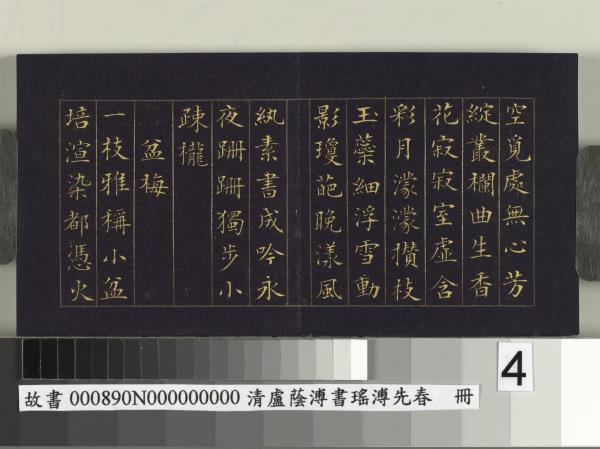 空覓處無心芳
綻叢欄曲生香
花寂寂室虛含
彩月濛濛攢枝
玉蘂細浮雪動
影瓊葩晚漾風
紈素書成吟永
夜珊珊獨步小
疎櫳
盆梅
一枝雅稱小盆
培渲染都憑火
4
故書 000890N000000000 清盧蔭溥書瑤溥先春 冊